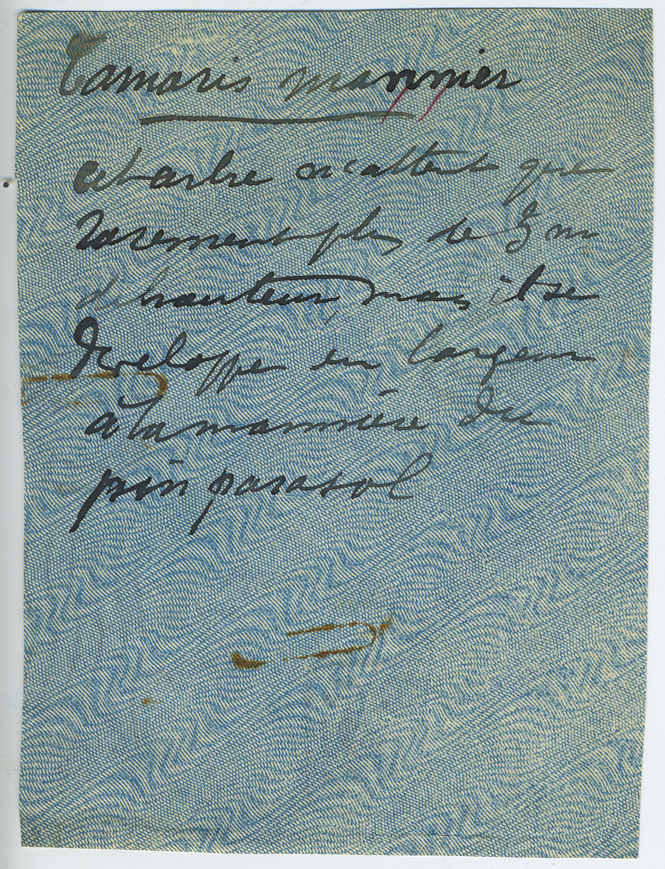 Tamaris mannier
cet arbre n'attent que
rarement plus de 3 m
de hauteur, mais il se
developpe en largeur
à la mannière du
pin parasol